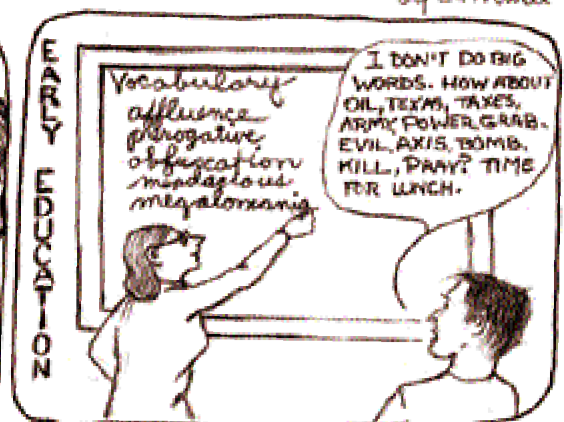 EARLY EDUCATION
Vocabulary
affluence
prerogative
obfuscation
mendacious
megalomania
I DON'T DO BIG
WORDS. HOW ABOUT
OIL, TEXAS, TAXES,
ARMY, POWER, GRAB.
EVIL, AXIS, BOMB.
KILL, PRAY? TIME
FOR LUNCH.